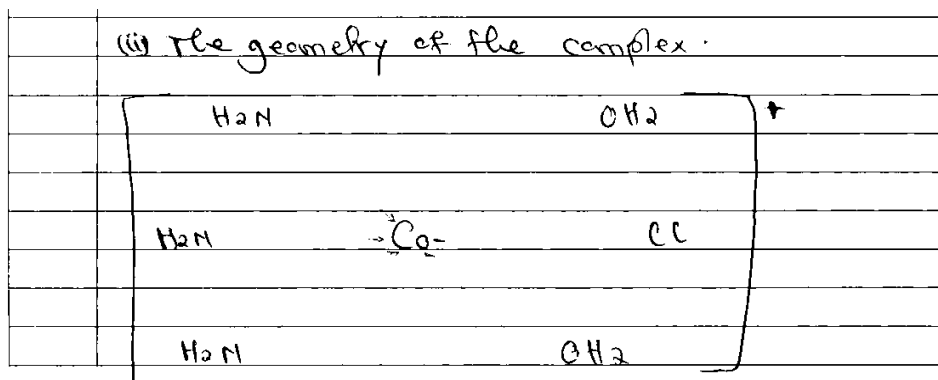 (ii) The geometry of the complex.
H2N OH2 +
H2N Co Cl
H2N OH2